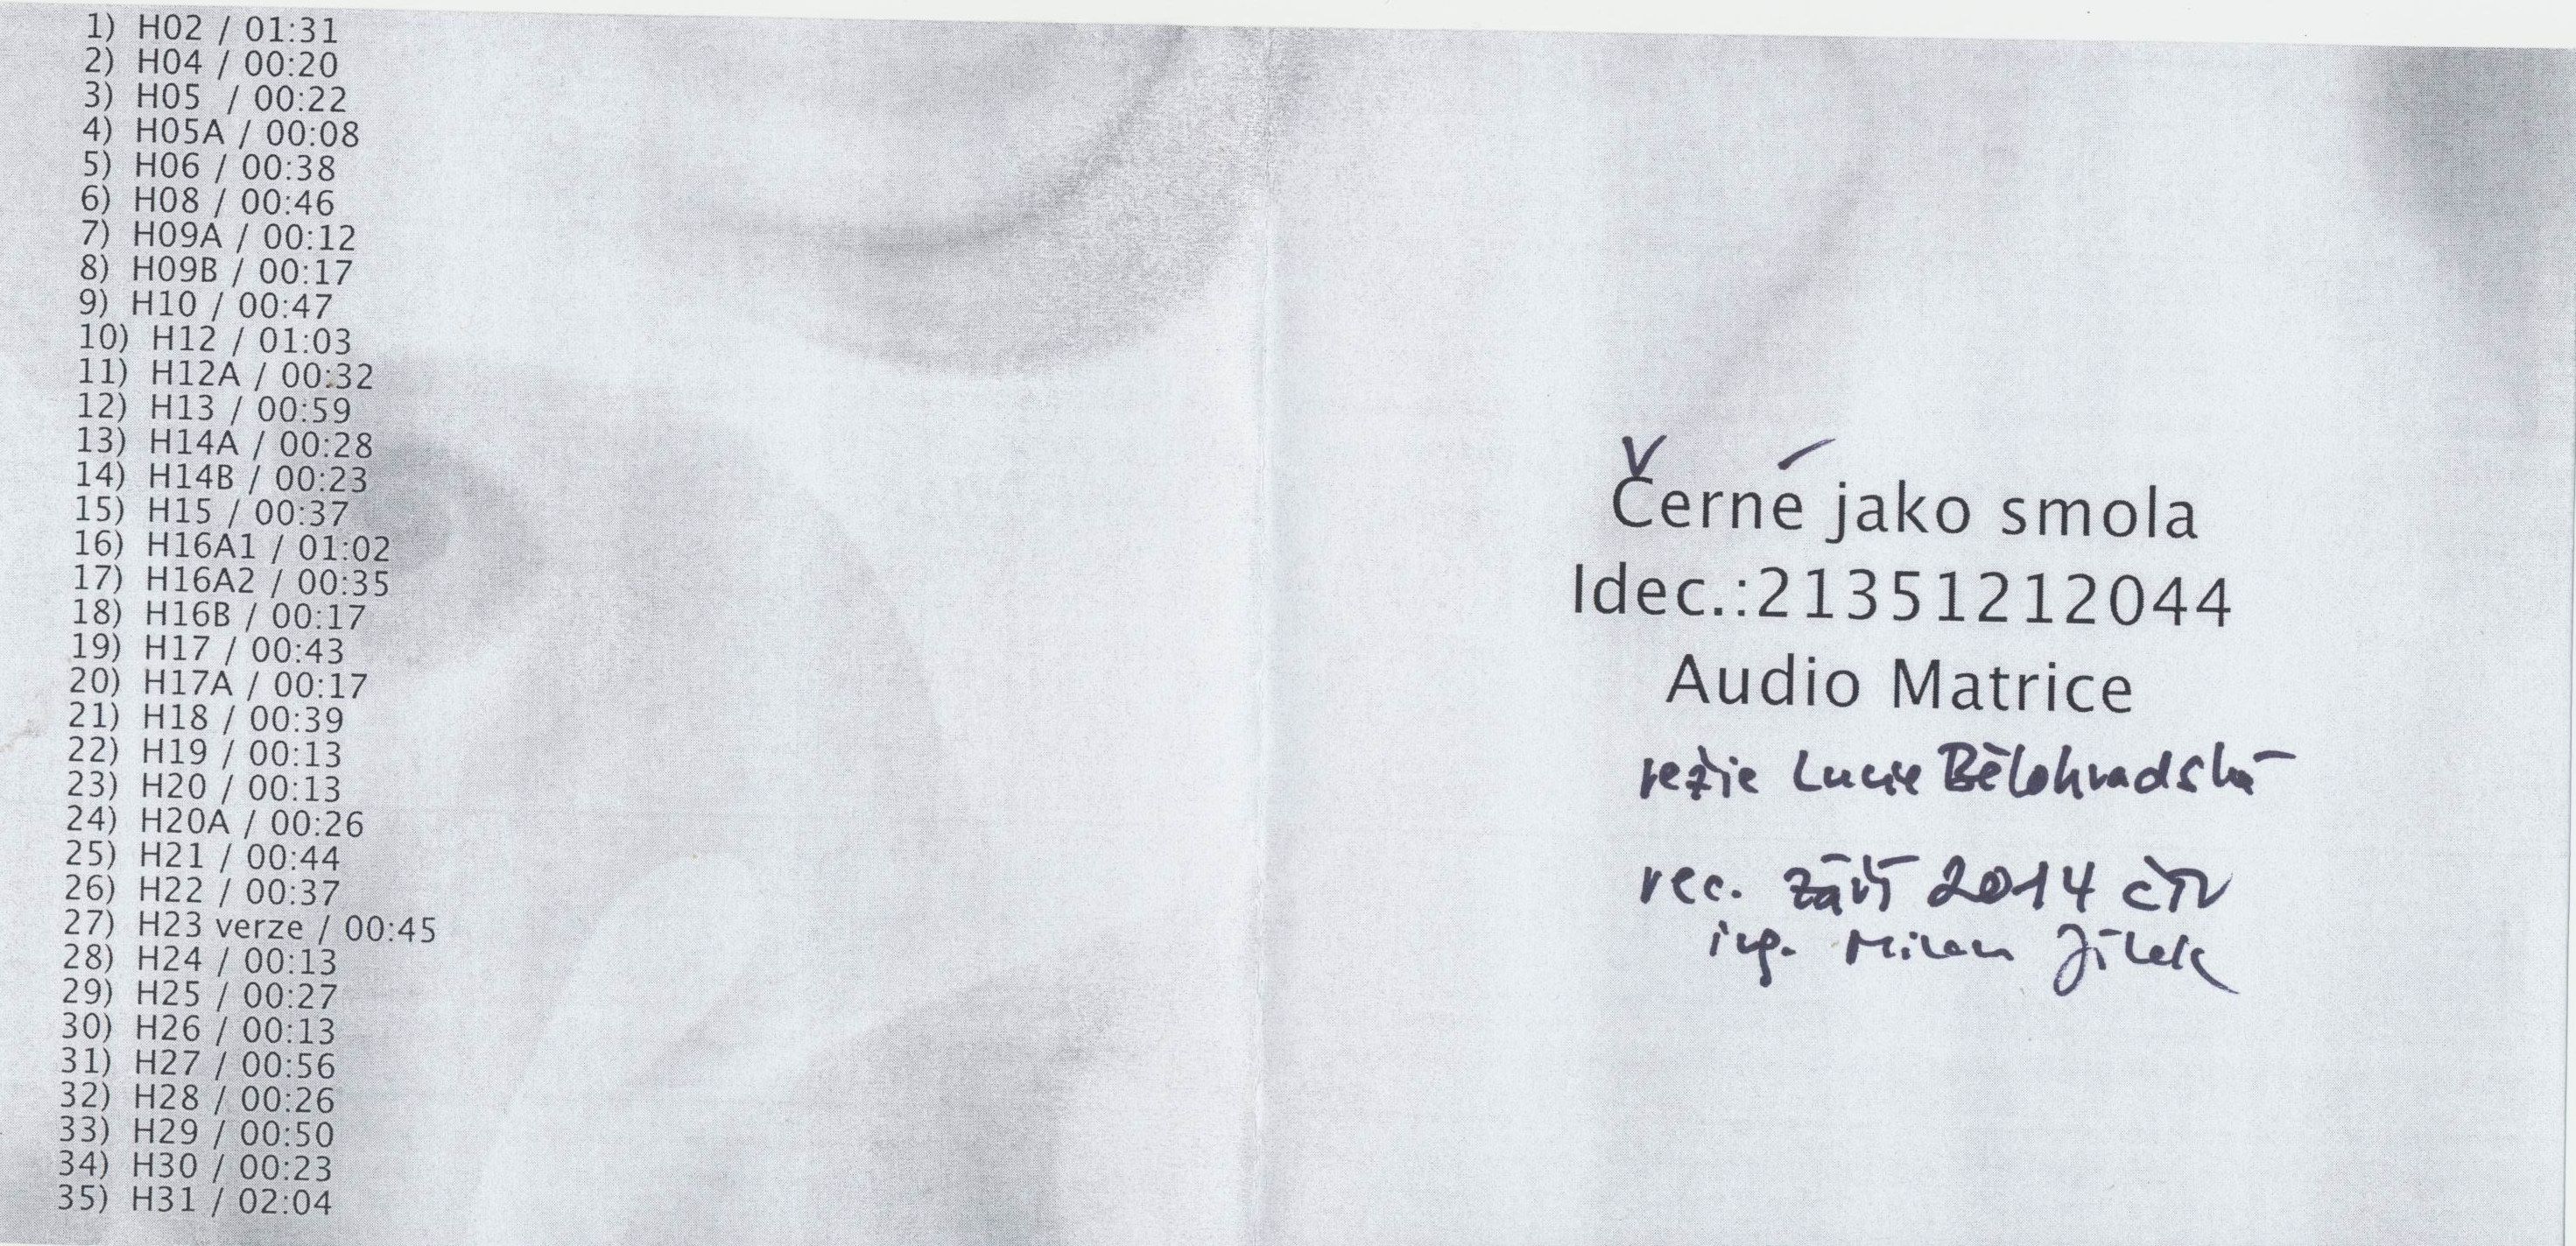 1) H02 / 01:31
2) H04 / 00:20
3) H05 / 00:22
4) H05A / 00:08
5) H06 / 00:38
6) H08 / 00:46
7) H09A / 00:12
8) H09B / 00:17
9) H10 / 00:47
10) H12 / 01:03
11) H12A / 00:32
12) H13 / 00:59
13) H14A / 00:28
14) H14B / 00:23
15) H15 / 00:37
16) H16A1 / 01:02
17) H16A2 / 00:35
18) H16B / 00:17
19) H17 / 00:43
20) H17A / 00:17
21) H18 / 00:39
22) H19 / 00:13
23) H20 / 00:13
24) H20A / 00:26
25) H21 / 00:44
26) H22 / 00:37
27) H23 verze / 00:45
28) H24 / 00:13
29) H25 / 00:27
30) H26 / 00:13
31) H27 / 00:56
32) H28 / 00:26
33) H29 / 00:50
34) H30 / 00:23
35) H31 / 02:04
Černé jako smola
Idec.:21351212044
Audio Matrice
režie Lucie Bělohradská
rec. září 2014 ČTV
ing. Milan Jílek